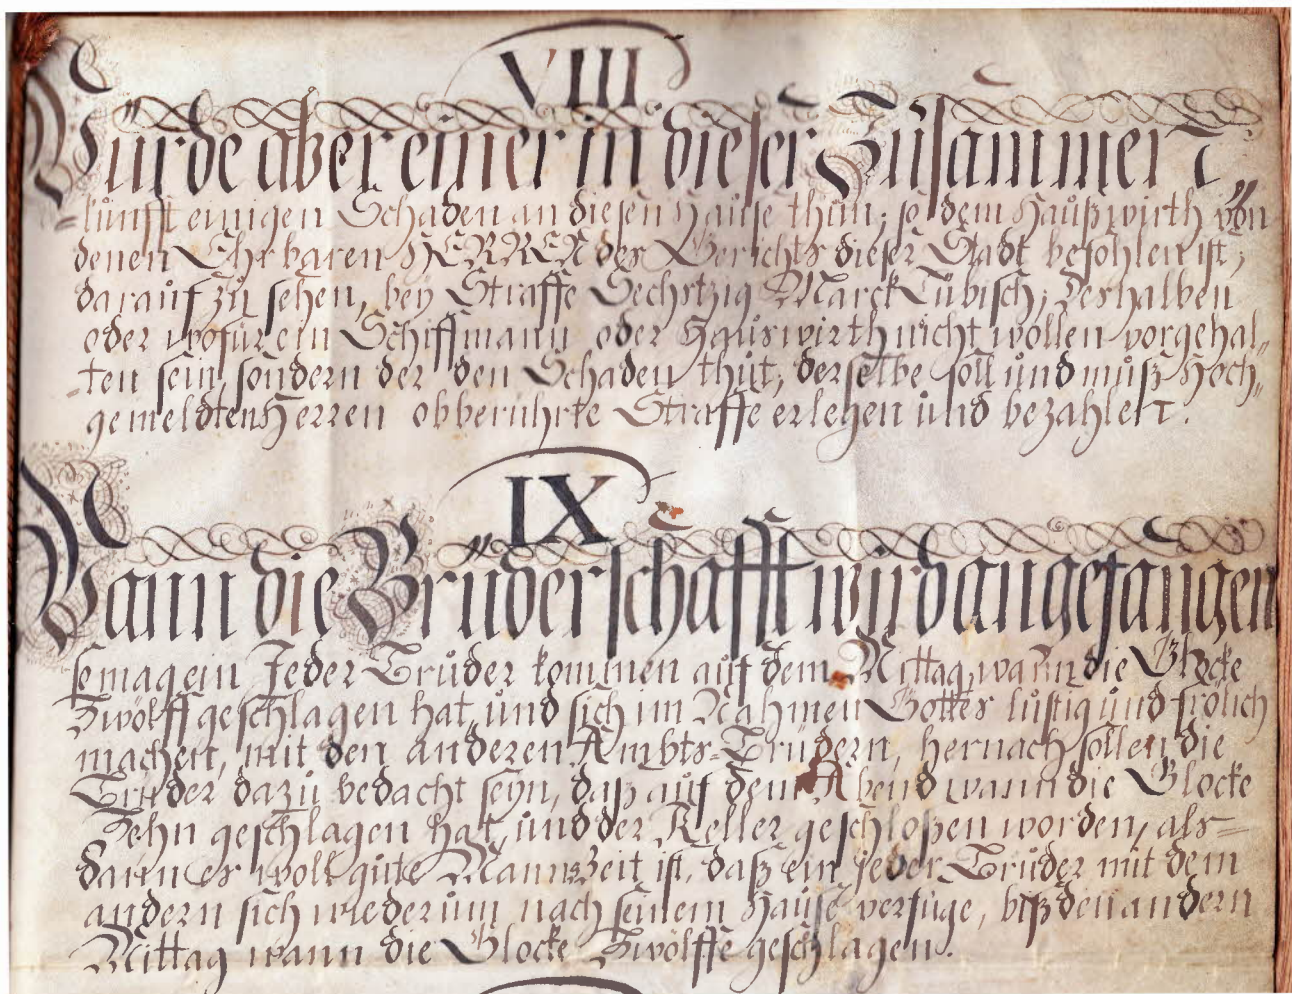 VIII
Würde aber einer in dieser Zusammen
kunfft einigen Schaden an diesen Hause thun; so dem Haußwirth von
denen Ehrbaren HERREN des Gerichts dieser Stadt befohlen ist,
darauf zu sehen, bey Straffe Sechstzig Marck Lübisch; deshalben
oder wofür ein Schiffmann oder Hauswirth nicht wollen vorgehal„
„ten sein, sondern der den Schaden thut, derselbe soll und muß Hoch„
gemeldten Herren obberührte Straffe erlegen und bezahlen.
IX
Wann die Brüderschafft wird angefangen
so mag ein Jeder Bruder kommen auf dem Mittag, wann die Glocke
Zwölff geschlagen hat, und sich im Nahmen Gottes lustig und frölich
machen, mit den anderen Ambts-Brüdern, hernach sollen die
Brüder dazu bedacht seyn, daß auf dem Abend wann die Glocke
Zehn geschlagen hat, und der Keller geschloßen worden, als=
dann es woll gute Mannszeit ist, daß ein jeder Bruder mit dem
andern sich wiederum nach seinem Hause verfüge, biß den andern
Mittag wann die Glocke Zwölffe geschlagen.